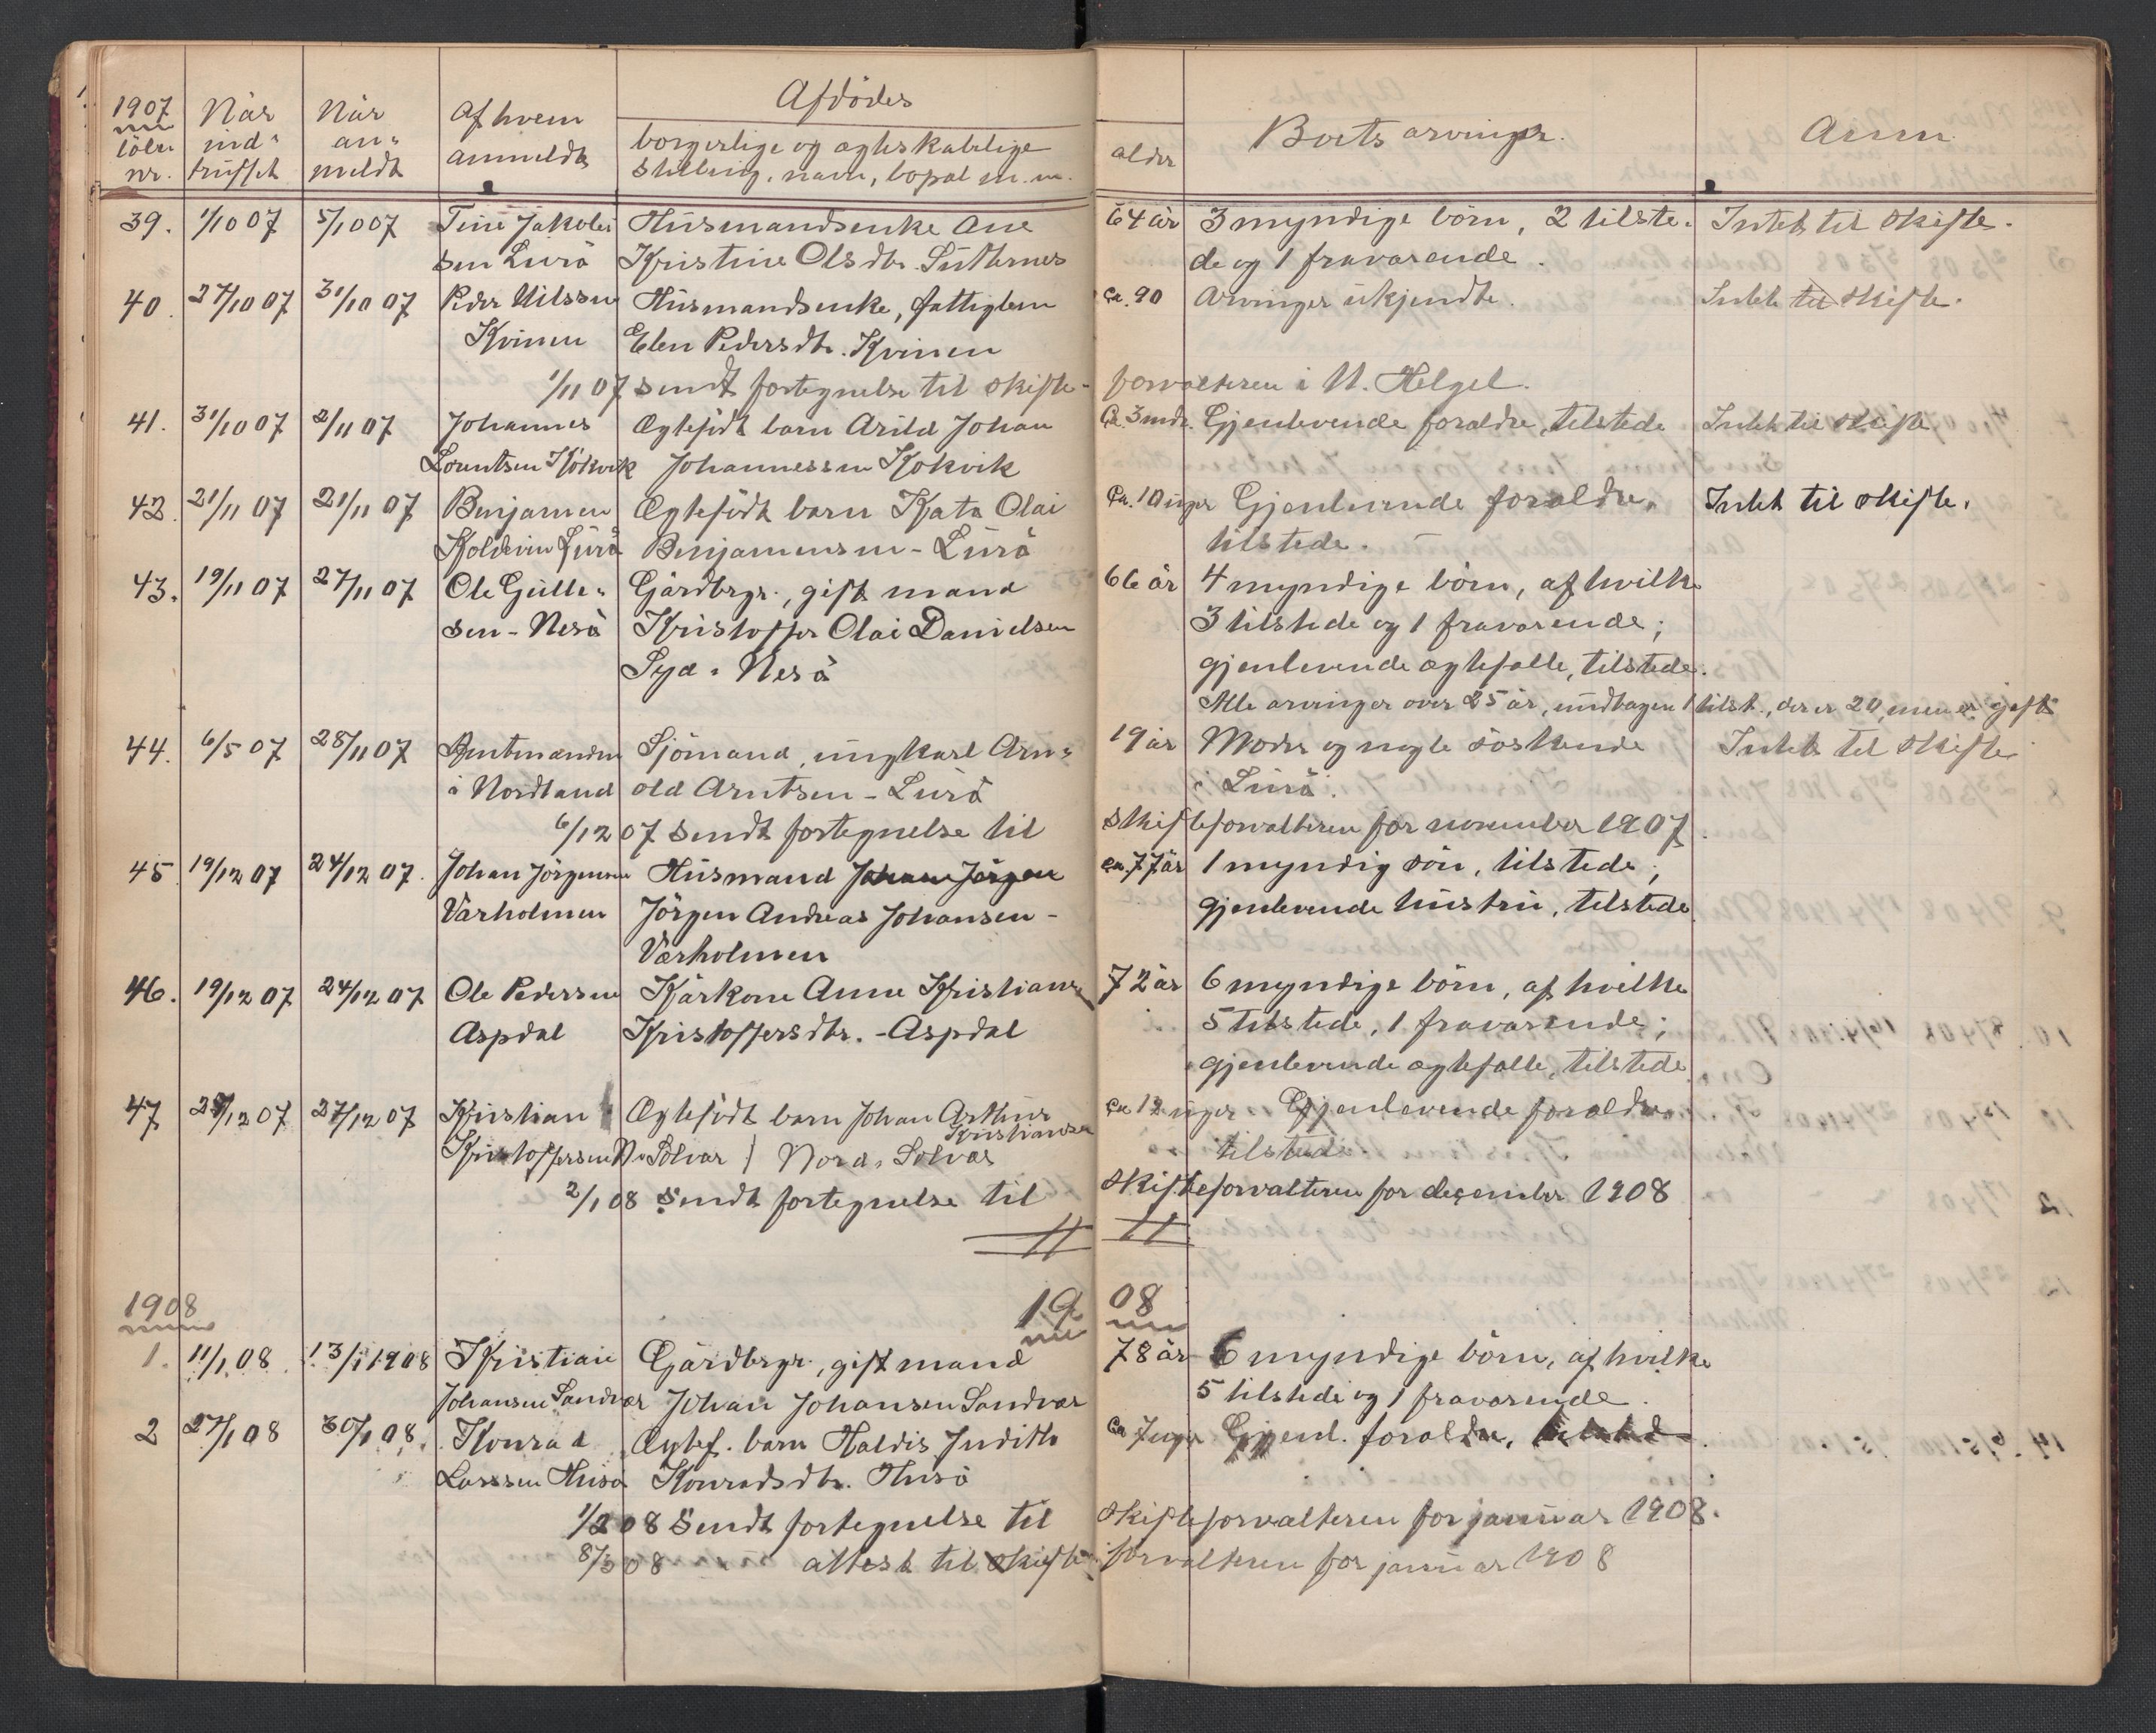 1907 Når Når Af hvem Afdødes
løbe ind- an- anmeldt borgerlige og ægteskabelige alder Boets arvinger. Anm.
nr. truffet meldt stilling, navn, bopæl m.m.
39. 1/10 07 5/10 07 Tine Jakob- Husmandsenke Ane 64 år 3 myndige börn, 2 tilste- Intet til skifte.
sen Lurö Kristine Olsdtr. Sutternes de og 1 fraværende.
40. 27/10 07 31/10 07 Peder Nilssen Husmandsenke, fattiglem ca. 90 Arvinger ukjendte. Intet til skifte.
Kvinen Elen Pedersdtr. Kvinen
1/11 07 sendt fortegnelse til skifte- forvalteren i N. Helgel.
41. 31/10 07 2/11 07 Johannes Ægtefödt barn Arild Johan Ca. 3 mdr. Gjenlevende forældre, tilstede Intet til skifte
Lorentsen Kokvik Johannessen Kokvik
42. 21/11 07 21/11 07 Benjamen Ægtefödt barn Kato Olai Ca. 10 uger Gjenlevende forældre, Intet til skifte.
Kolderin Lurö Benjamensen - Lurö tilstede.
43. 19/11 07 27/11 07 Ole Gulle- Gårdbrgr., gift mand 66 år 4 myndige börn, af hvilke
sen - Nesö Kristoffer Olai Danielsen 3 tilstede og 1 fraværende;
Syd-Nesö gjenlevende ægtefælle, tilstede.
Alle arvinger over 25 år, undtagen 1 tilst., der er 20, men er gift
44. 6/5 07 28/11 07 Amtmanden Sjömand, ungkarl Arn- 19 år Moder og nogle söskende Intet til skifte
i Nordland old Arntsen - Lurö i Lurö.
6/12 07 sendt fortegnelse til skifteforvalteren for november 1907.
45 19/12 07 24/12 07. Johan Jörgensen Husmand Johan Jörgen ca. 77 år 1 myndig sön, tilstede;
Værholmen Jörgen Andreas Johansen - gjenlevende hustru, tilstede
Værholmen
46. 19/12 07 24/12 07 Ole Pedersen Kårkone Anne Kristiane 72 år 6 myndige börn, af hvilke
Aspdal Kristoffersdtr. - Aspdal 5 tilstede, 1 fraværende;
gjenlevende ægtefælle, tilstede
47 27/12 07 27/12 07 Kristian Ægtefödt barn Johan Arthur ca 12 uger Gjenlevende forældre
Kristiansen
Kristoffersen N. Solvær Nord-Solvær tilstede.
2/1 08 sendt fortegnelse til skifteforvalteren for desember 1908
1908 19 08
1. 11/1 08 13/1 1908 Kristian Gårdbrgr., gift mand 78 år 6 myndige börn, af hvilke
Johansen Sandvær Johan Johansen Sandvær 5 tilstede og 1 fraværende.
2 27/1 08 30/1 08. Konrad Ægtef. barn Haldis Judith ca 7 uger Gjenl. forældre, tilsted
Larssen Husö Konradsdtr. Husö
1/2 08 Sendt fortegnelse til skifteforvalteren for januar 1908.
8/3 08 attest til skifte- forvalteren for januar 1908